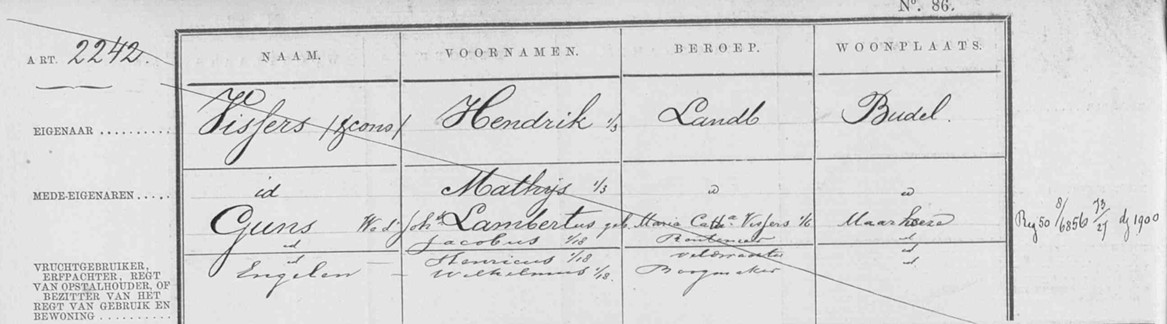 N°. 86.
ART. 2242.
NAAM. VOORNAMEN. BEROEP. WOONPLAATS.
EIGENAAR .......... Vissers /&cons/ Hendrik 1/3 Landb Budel.
MEDE-EIGENAREN ..... id Mathijs 1/3 id id
Guns Wed. Joh.s Lambertus geb. Maria Cath.a Vissers 1/6 Maarheeze
Reg 50 8/6856 73/27 dj 1900
id Jacobus 1/18 Rentenier id
id Henricus 1/18 veldwachter id
Engelen – Wilhelmus 1/18. id
VRUCHTGEBRUIKER,
ERFPACHTER, REGT
VAN OPSTALHOUDER, OF
BEZITTER VAN HET
REGT VAN GEBRUIK EN
BEWONING ..........